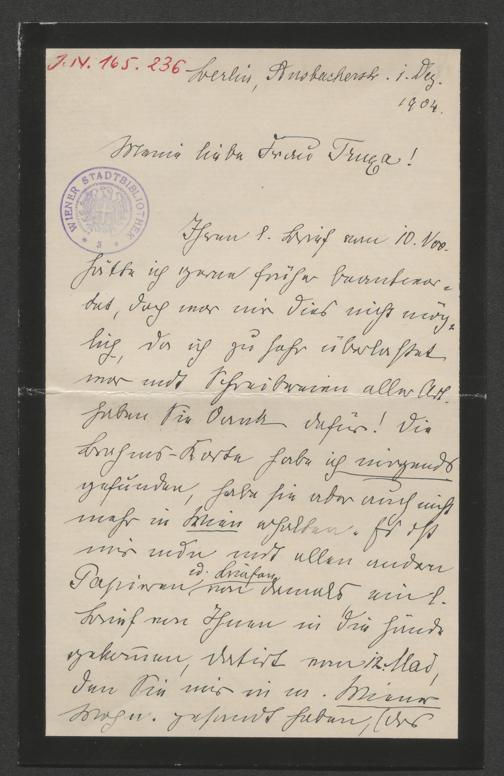 J.N. 165.236
Berlin, Ansbacherstr. 1. Dez.
1904.
Meine liebe Frau Truxa!
WIENER STADTBIBLIOTHEK
Ihren l. Brief vom 10. Nov.
hätte ich gerne früher beantwor-
tet, doch war mir dies nicht mög-
lich, da ich zu sehr überlastet
war mit Schreibereien aller Art.
Haben Sie Dank dafür! Die
Brahms-Karte habe ich nirgends
gefunden, habe sie aber auch nicht
mehr in Wien erhalten. Es ist
mir nun mit allen andern
Papieren u. Briefen von damals ein l.
Brief von Ihnen in die Hände
gekommen, datirt vom 12. Mai,
den Sie mir in m. Wiener
Wohn. gesandt haben, (das